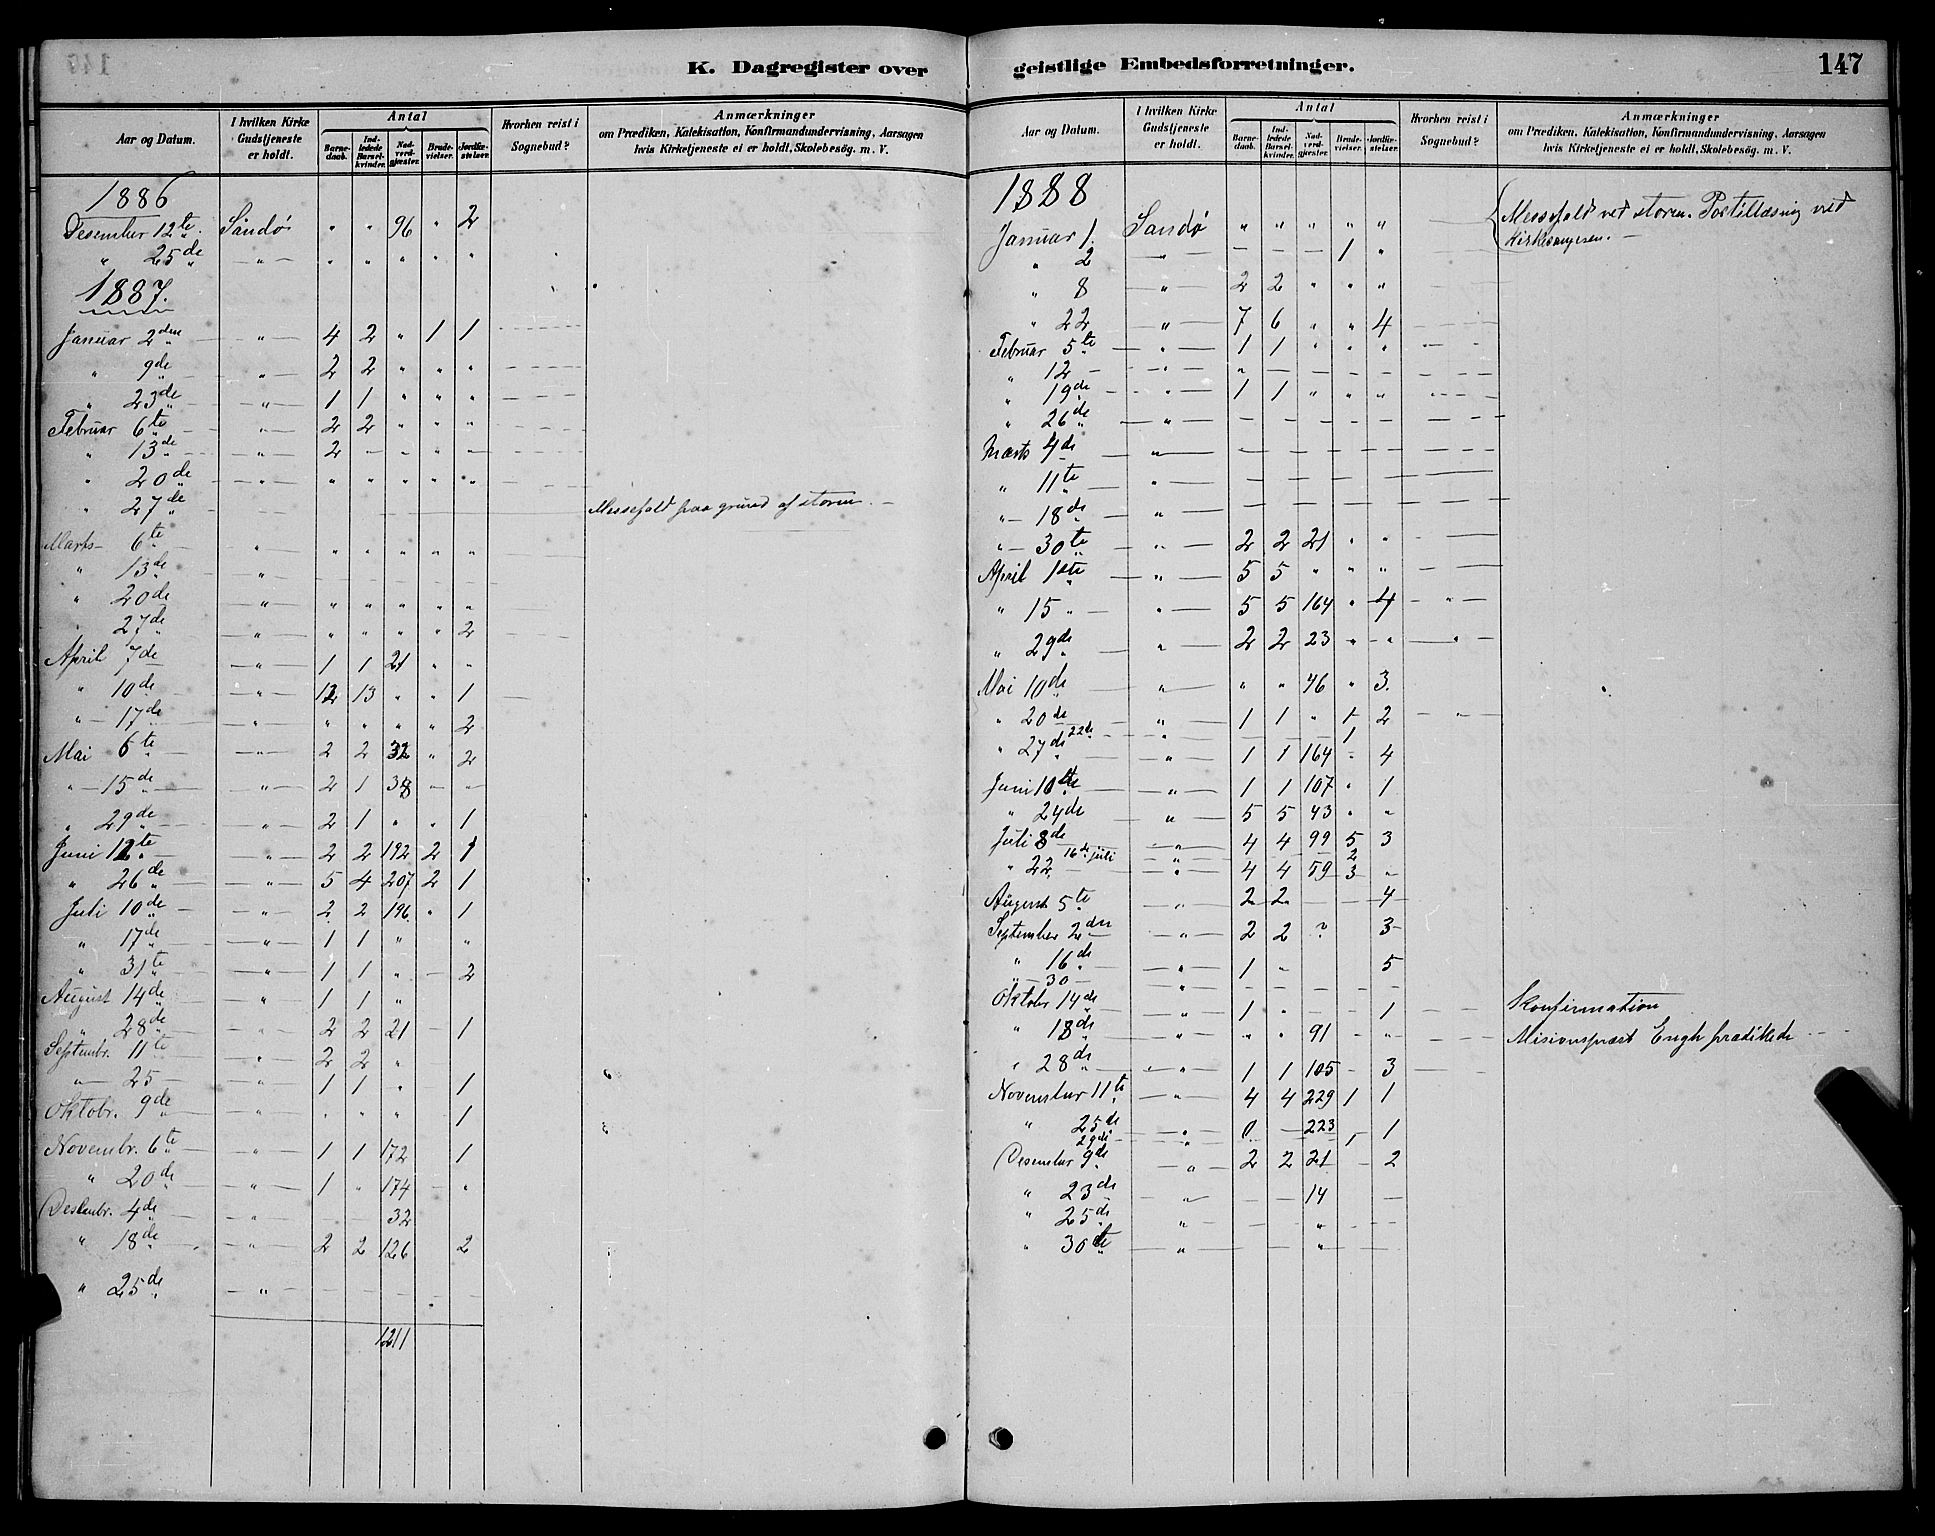 K. Dagregister over
Aar og Datum. I hvilken Kirke Gudstjeneste er holdt. Antal Barnedaab. Indledede Barselkvinder. Nadverdgjæster. Brudevielser. Jordfæstelser. Hvorhen reist i Sognebud? Anmærkninger om Prædiken, Katekisation, Konfirmandundervisning, Aarsagen hvis Kirketjeneste ei er holdt, Skolebesøg. m. V.
1886
Desember 12te. Sandø " " 96 " 2
" 25de — " — " " " " "
1887.
Januar 2den — " — 4 2 " 1 1
" 9de — " — 2 2 " " "
" 23de — " — 1 1 " " "
Februar 6te — " — 2 2 " " "
" 13de — " — 2 — " " —
" 20de — " — " " " " "
" 27de — " — Messefald paa grund af storm. —
Marts 6te — " — " " " " "
" 13de — " —
" 20de — " — " " " " "
" 27de — " — " " " " 2
April 7de — " — 1 1 21 " "
" 10de — " — 12 13 " " 1
" 17de — " — " " " " 2
Mai 6te — " — 2 2 32 " 2
" 15de — " — 2 1 38 — —
" 29de — " — 2 1 " " 1
Juni 12te — " — 2 2 192 2 1
" 26de — " — 5 4 207 2 1
Juli 10de — " — 2 2 196 " 1
" 17de — " — 1 1 " "
" 31te — " — 1 1 " — 2
August 14de " 1 1 "
" 28de — " — 2 2 21 — 1
Septembr. 11te — " — 2 2 "
" 25 — " — 1 1 " 1
Oktobr. 9de — " — " " " 1
Novembr. 6te — " — 1 1 172 1
" 20de — " — 1 " 174 — "
Desembr. 4de — " — — — 32
" 18de — " — 2 2 126 2
" 25de — " — — — — — —
1211
geistlige Embedsforretninger. 147
Aar og Datum. I hvilken Kirke Gudstjeneste er holdt. Antal Barnedaab. Indledede Barselkvinder. Nadverdgjæster. Brudevielser. Jordfæstelser. Hvorhen reist i Sognebud? Anmærkninger om Prædiken, Katekisation, Konfirmandundervisning, Aarsagen hvis Kirketjeneste ei er holdt, Skolebesøg. m. V.
1888
Januar 1. Sandø " " " " " Messefald ved storm. Postillæsnig ved
" 2 — " — — — — 1 " Kirkesangeren. —
" 8 — " — 2 2 " " "
" 22 — " — 7 6 " " 4
Februar 5te — " — 1 1 " " "
" 12 — " — " — — — —
" 19de — " — 1 1 " " "
" 26de — " — — — — — —
Marts 4de — " — — — — — —
" 11te — " — — — — — —
" 18de — " — — — — — —
" 30te " — 2 2 21 " "
April 1ste — " — 5 5 " " "
" 15 " — " — 5 5 164 " 4 — " —
" 29de " — 2 2 23 " " — " —
Mai 10de " — " " 46 " 3.
" 20de — " — 1 1 " 1 2 — " —
22de — " — 1
" 27de " — 1 1 164 " 4
Juni 10de — " — 1 1 107 " 1
" 24de " — 5 5 43 " "
Juli 8de — " — 4 4 99 5 3
16de juli — " — 2
" 22 — " — 4 4 59 3 "
August 5te — " — 2 2 — — 4
September 2den — " — 2 2 " 3
" 16de — " — 1 " 5
" 30 — " — — — — — —
Oktober 14de — " — 1 " — — 1 Konfirmation
" 18de — " — " " 91 — " Misionsprest Engh prædikede
" 28de — " — 1 1 105 — 3
November 11te — " — 4 4 229 1 1
" 25de — " — 0 — 223 1
29de — " — 1
Desember 9de — " — 2 2 21 — 2
" 23de — " — — — 14 —
" 25de " — — — " — —
" 30te — " — — — " — —